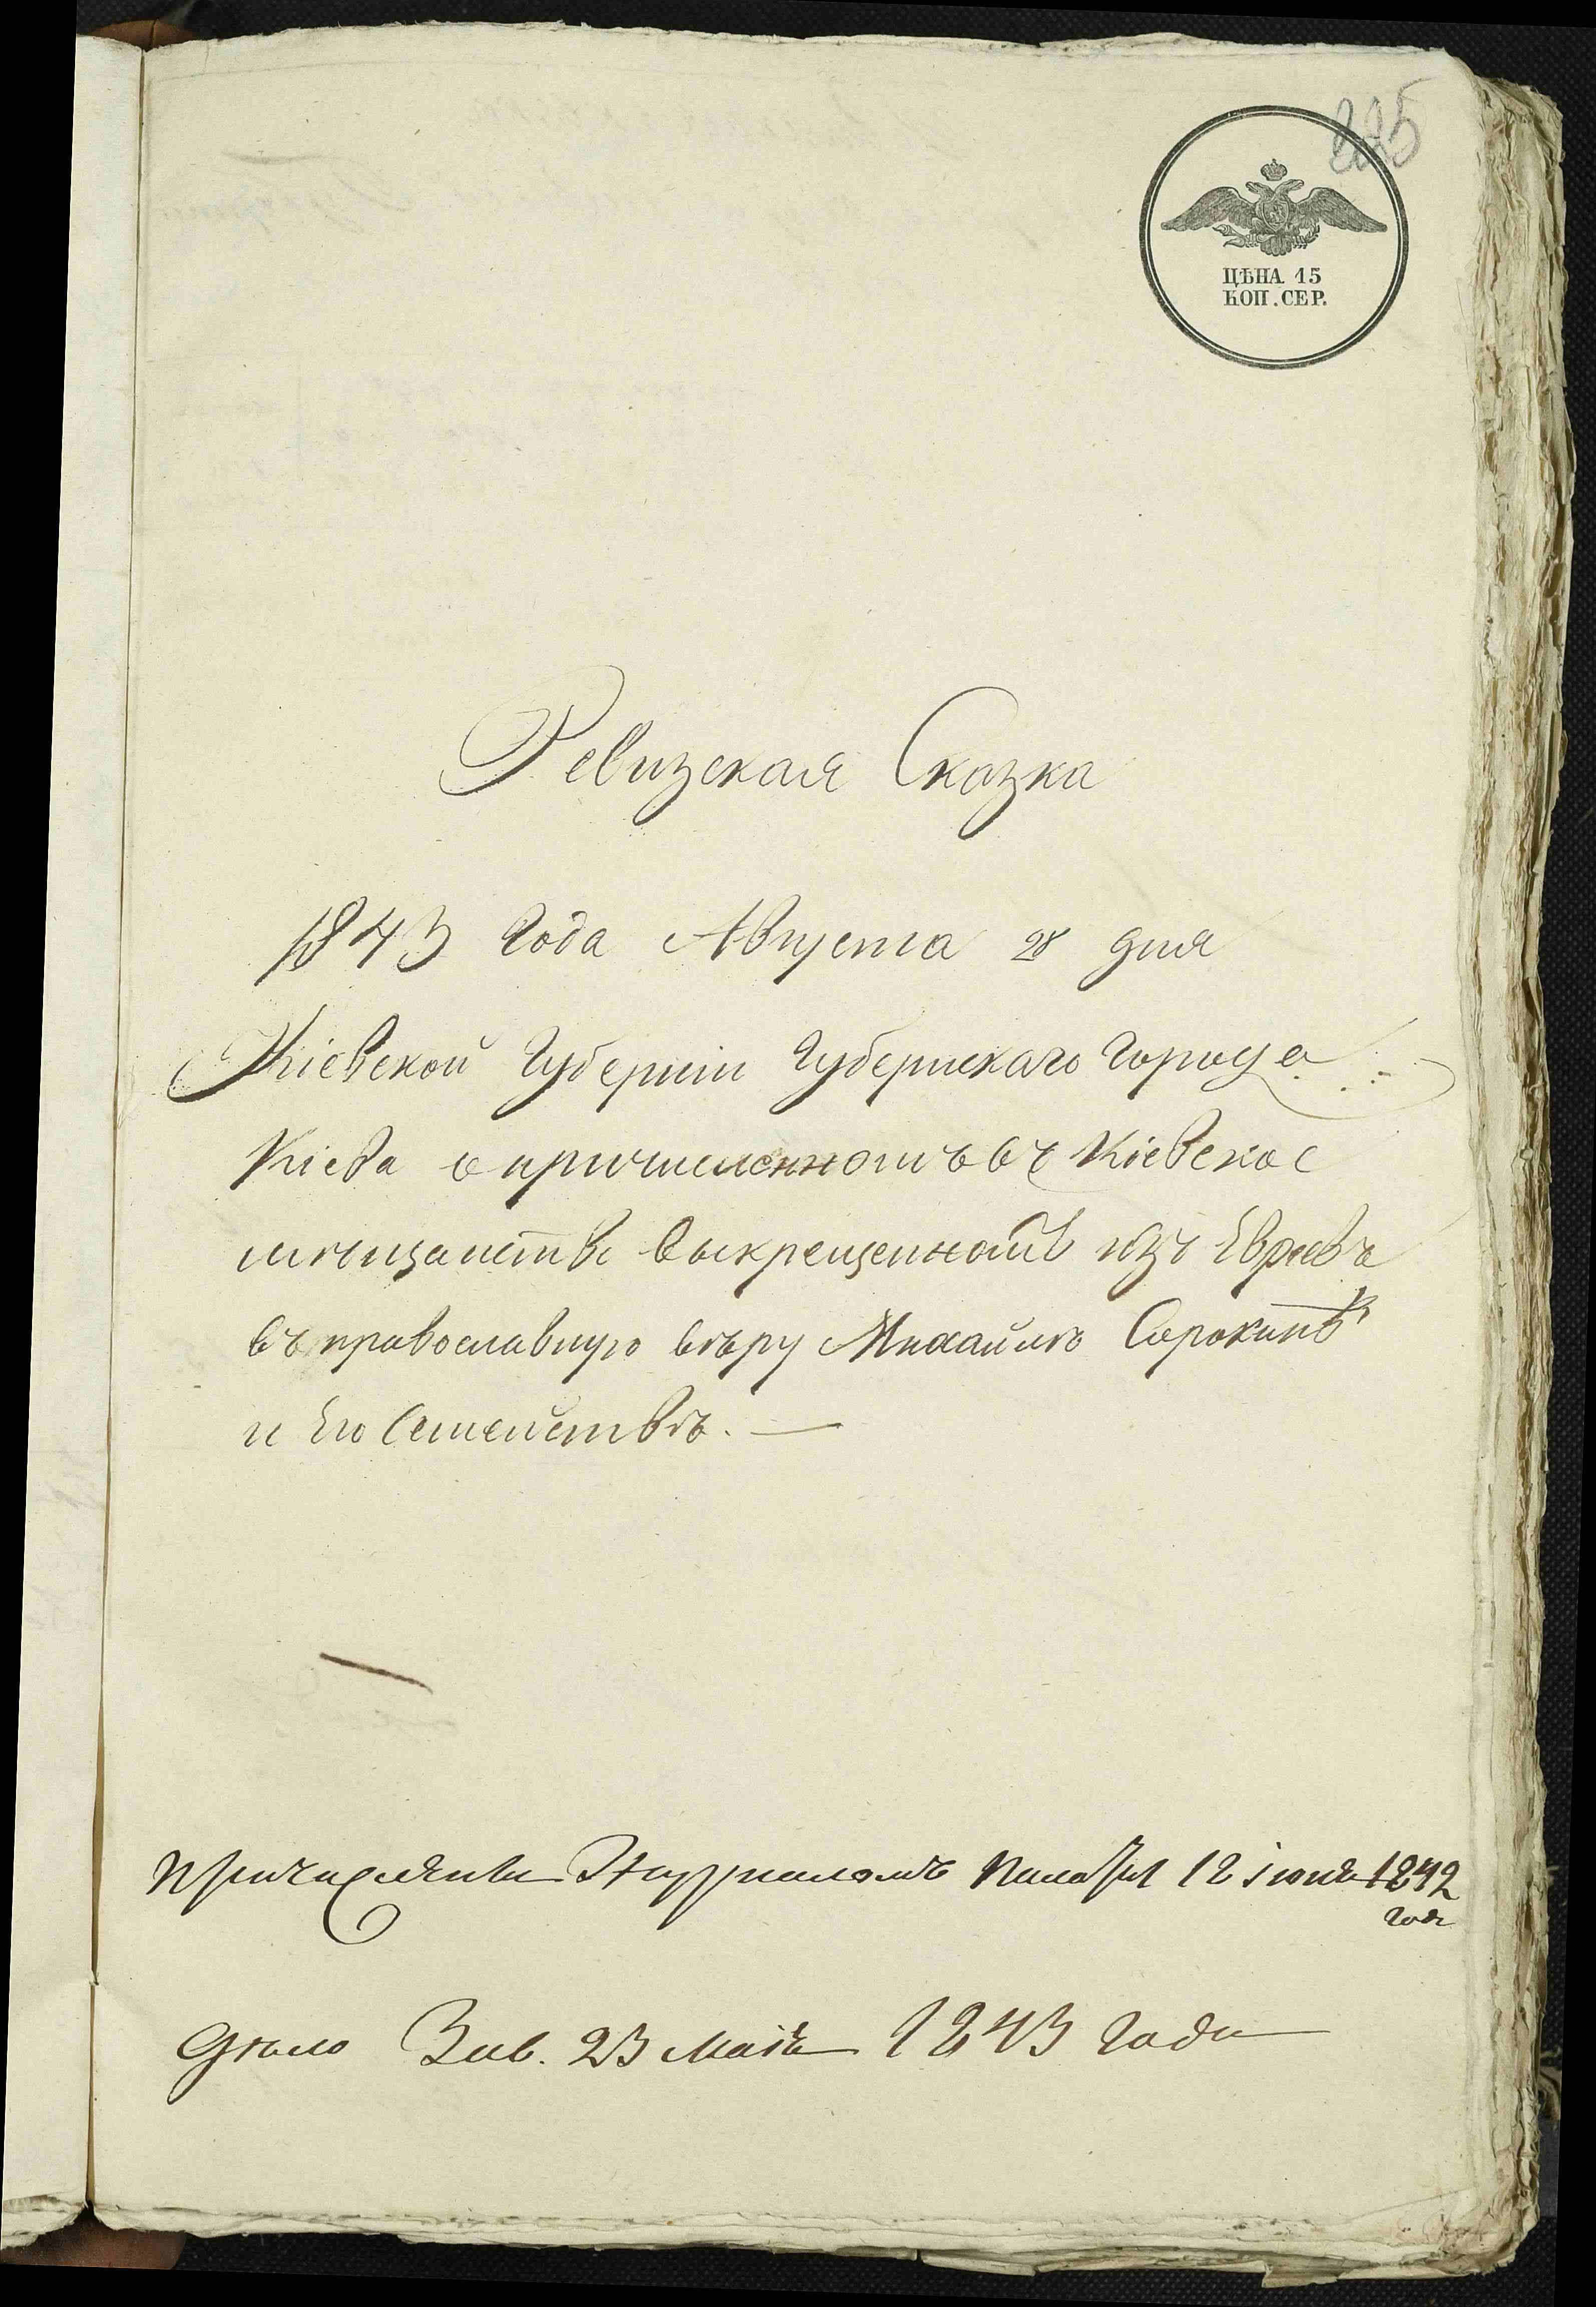 225
ЦѢНА 15
КОП. СЕР.
Ревизская Сказка
1843 Года Августа 28 дня
Кіевской Губерніи Губернскаго Города
Кіева о причисленномъ въ Кіевское
мѣщанство выкрещенномъ изъ Евреевъ
въ православную вѣру Михайлѣ Сорокинѣ
и Его Семействѣ. —
Причисленъ Журналомъ Палаты 12 іюня 1842
года
дѣло Зав. 23 Мая 1843 года